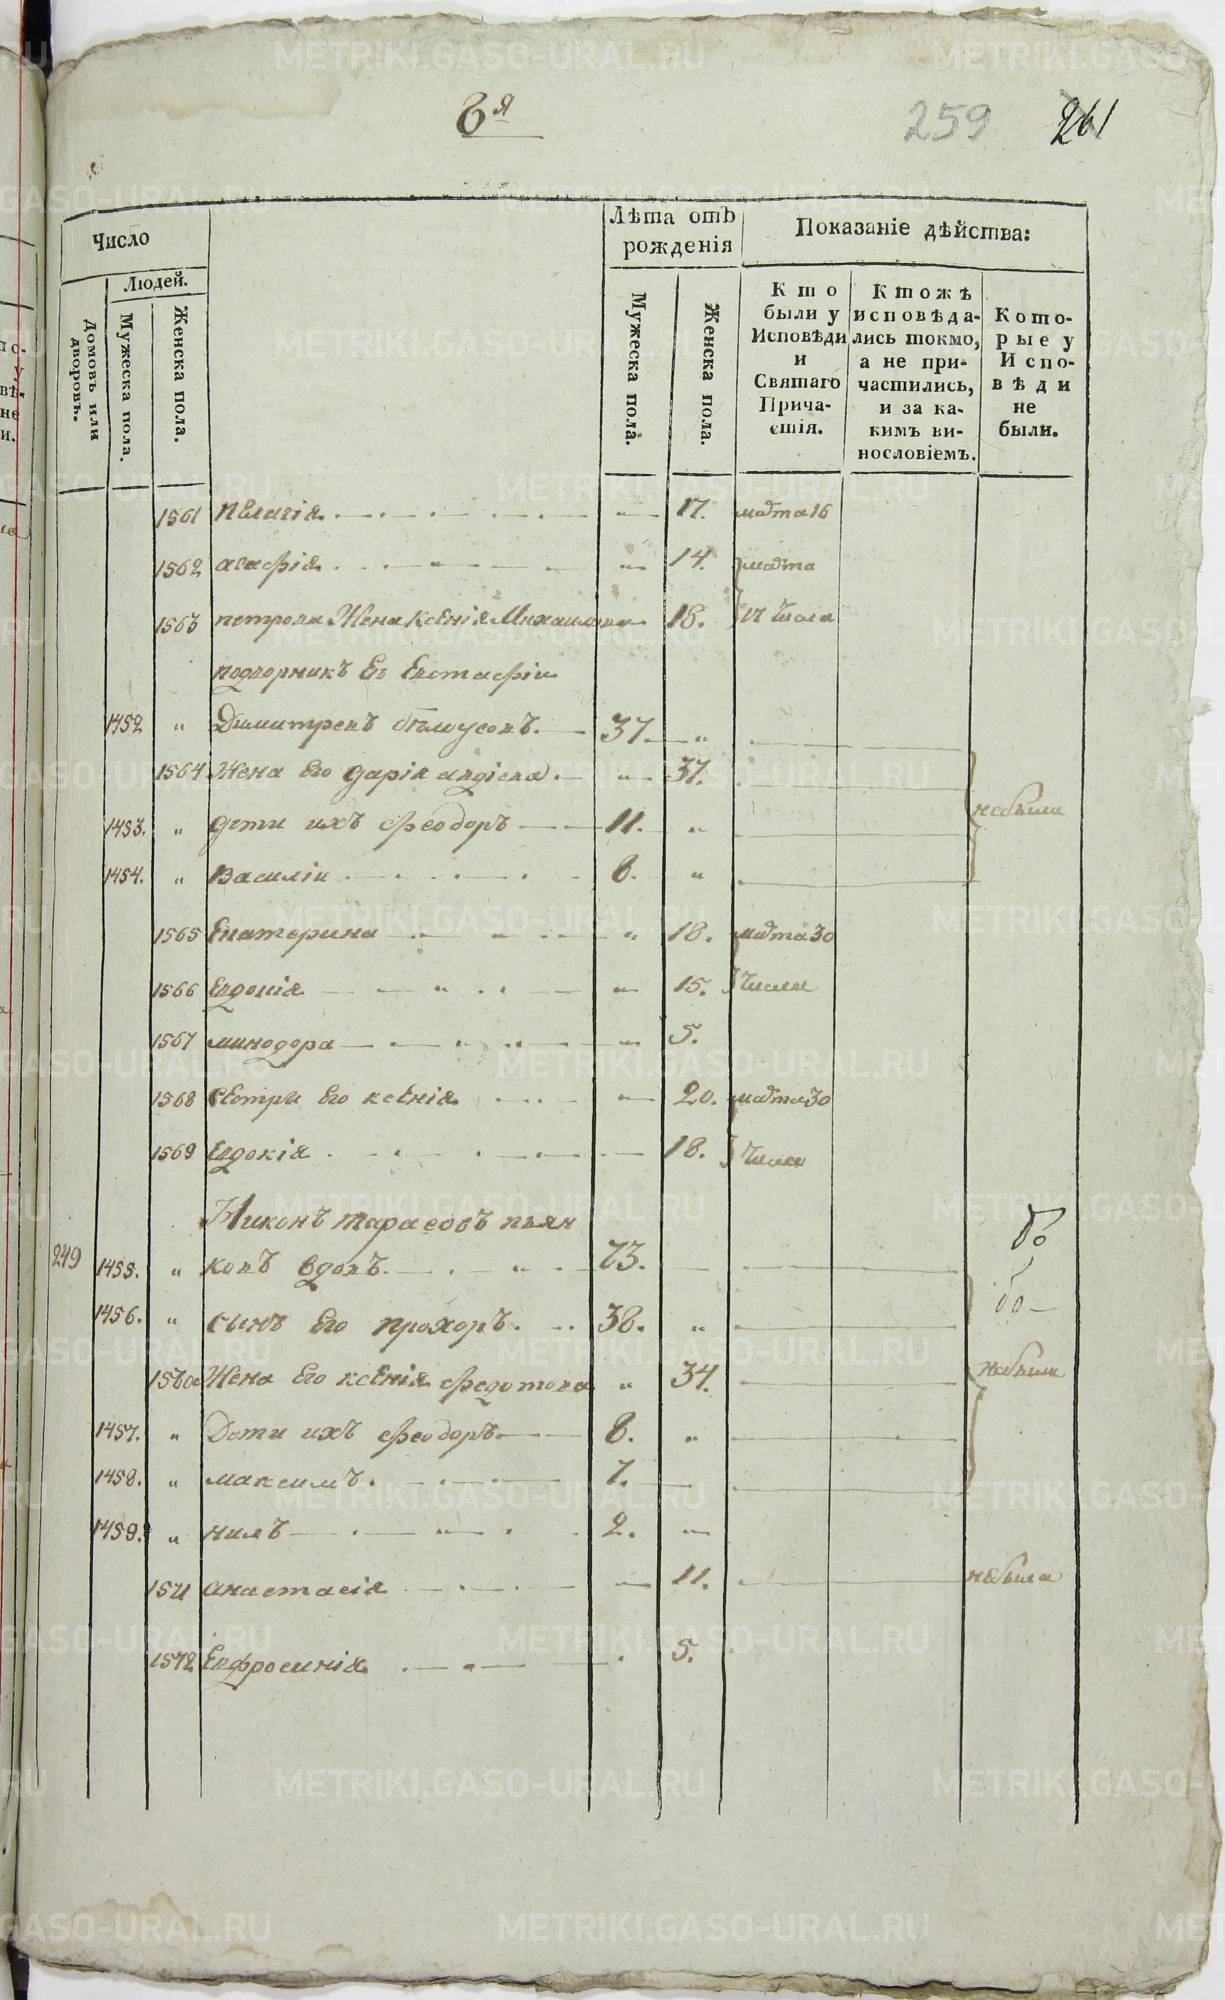 6я
259 261
Число
Людей.
Домовъ или дворовъ.
Мужеска пола.
Женска пола.
Лѣта отъ рожденія
Мужеска пола.
Женска пола.
Показаніе дѣйства:
Кто были у Исповѣди и Святаго Прича-стія.
Ктожъ исповѣда-лись токмо, а не при-частились, и за ка-кимъ ви-нословіемъ.
Кото-рые у Испо-вѣди не были.
1561 пелагія 17. марта 16
1562 агафія 14. марта
1563 петрова Жена ксенія Михаилова 18. числа
подворникъ Ево Евстафіи
1452 " Димитревъ бѣлоусовъ 37. "
1564 Жена Его дарія авдіева 37.
небыли
1453. " дети ихъ феодоръ 11. "
1454. " Василіи 8. "
1565 Екатерина " 18. марта 30
1566 Евдокія 15. числа
1567 минодора 5.
1568 сестры Его ксенія 20. марта 30
1569 Евдокія 18. числа
Никонъ тарасовъ пьян
249 1455. " ковъ вдовъ 73.
1456. " сынъ Его прохоръ 38. "
1570 Жена Его ксенія федотова " 34. небыли
1457. " Дети ихъ феодоръ 8. "
1458. " максимъ 7.
1459. " нилъ 2.
1571 анастасія 11. небыла
1572 Евфросинія 5.
METRIKI.GASO-URAL.RU